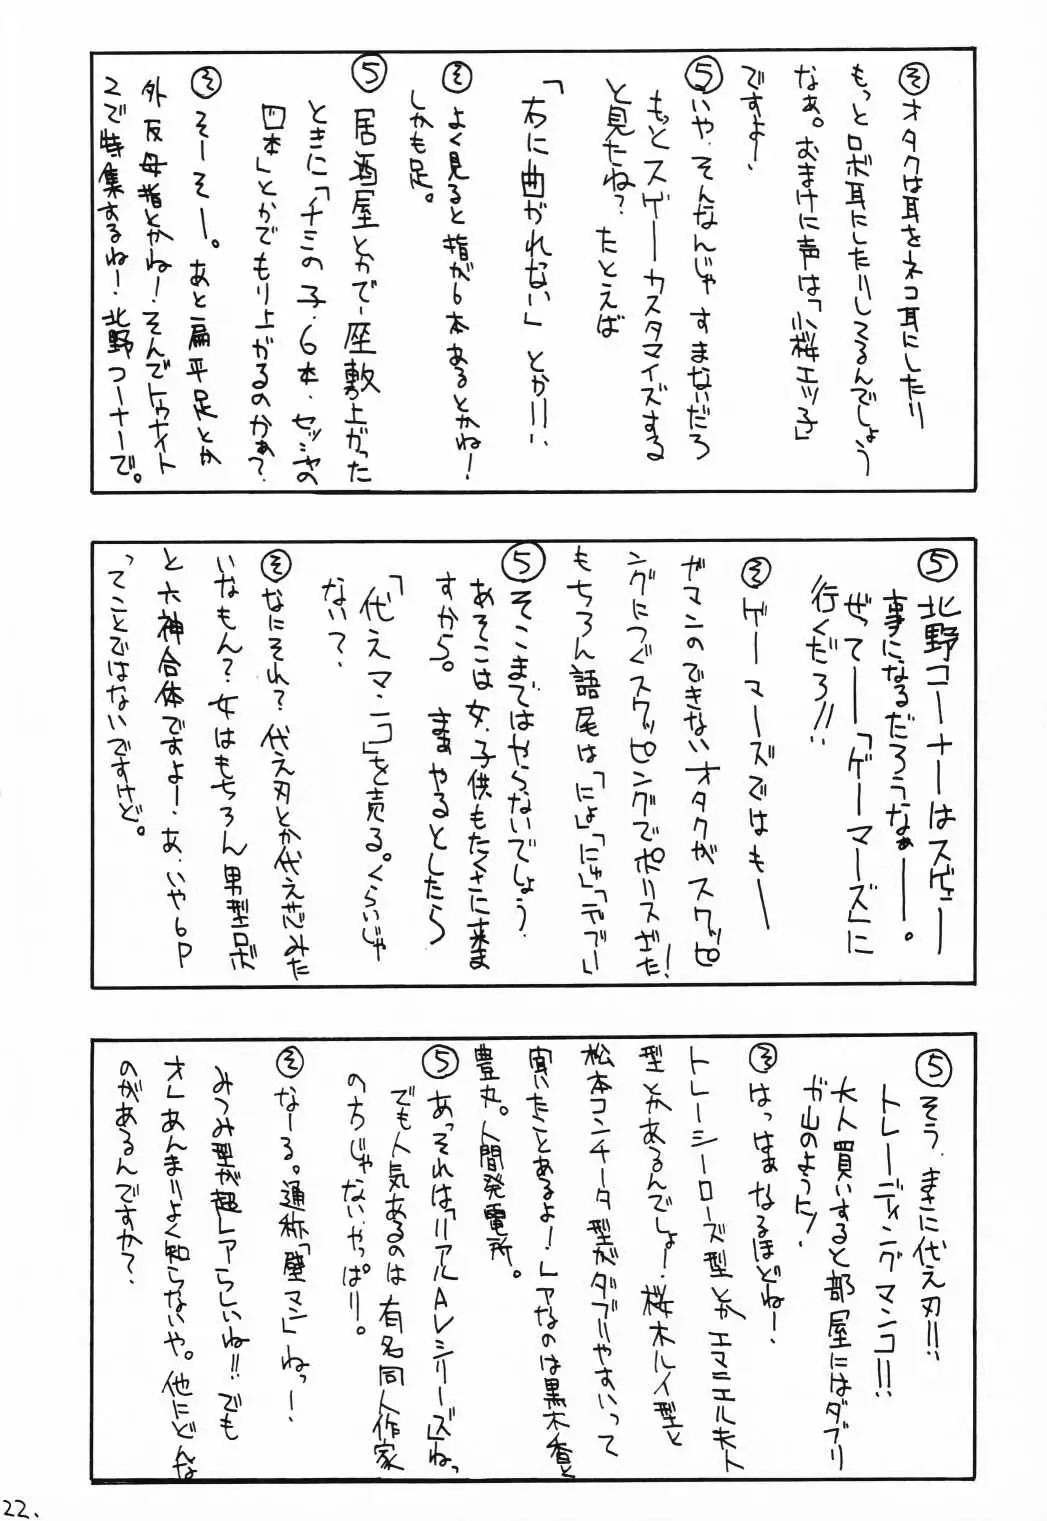 そ オタクは耳をネコ耳にしたり
もっとロボ耳にしたりしてるんでしょう
なぁ。おまけに声は「小桜エツ子」
ですよー、
5 いや、そんなんじゃすまないだろ
もっとスゲーカスタマイズする
と見たね？たとえば
「右に曲がれない」とかーー!!
そ よく見ると指が6本あるとかね！
しかも足。
5 居酒屋とかで座敷上がった
ときに「チミの子、6本、セッシャの
四本」とかでもり上がるのかぁ？
そ そーそー。あと扁平足とか
外反母指とかね！そんでトゥナイト
2で特集するね！北野コーナーで。
5 北野コーナーはスゲー
事になるだろうなぁー。
ぜってー「ゲーマーズ」に
行くだろ!!
そ ゲーマーズではもー
ガマンのできないオタクがスワッピ
ングにつぐスワッピングでポリスざた！
もちろん語尾は「にょ」「にゅ」「でブー」
5 そこまではやらないでしょう。
あそこは女、子供もたくさに来ま
すから。まぁやるとしたら
「代えマンコ」を売る。くらいじゃ
ない？
そ なにそれ？代え刃とか代え芯みた
いなもん？女はもちろん男型ロボ
と六神合体ですよー、あ、いや6P
ってことではないですけど。
5 そう、まさに代え刃!!
トレーディングマンコ!!
大人買いすると部屋にはダブリ
が山のように!
そ はっはぁなるほどねー、
トレーシーローズ型とかエマニエル夫人
型とかあるんでしょー、桜木ルイ型と
松本コンチータ型がダブリやすいって
聞いたことあるよ！レアなのは黒木香と
豊丸。人間発電所。
5 あっそれは「リアルAVシリーズ」ねっ
でも人気あるのは有名同人作家
の方じゃないやっぱり。
そ なーる。通称「壁マン」ねっー、
みつみ型が超レアらしいね!!でも
オレあんまりよく知らないや。他にどんな
のがあるんですか？
22.